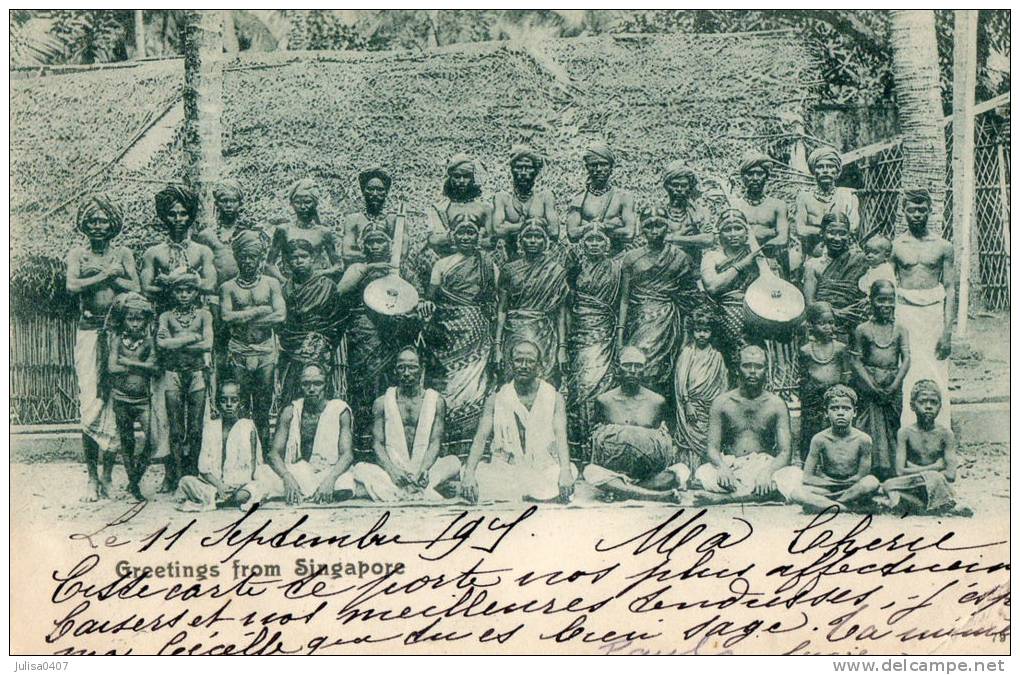 Le 11 Septembre 190
Ma Chérie
Greetings from Singapore
Cette carte te porte nos plus affectueux
baisers et nos meilleures tendresses, j'esp
ma Cécile que tu es bien sage. Ta
79
julisa0407
www.delcampe.net